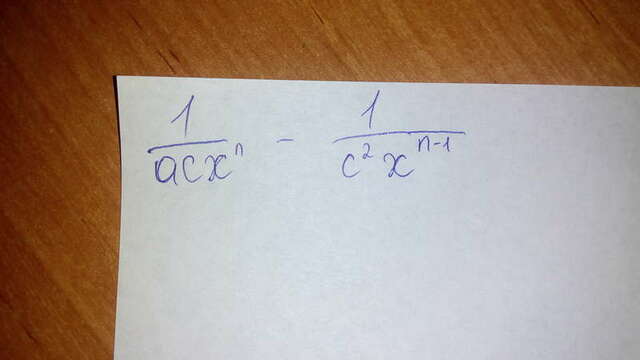 1/(acxⁿ) - 1/(c²xⁿ⁻¹)